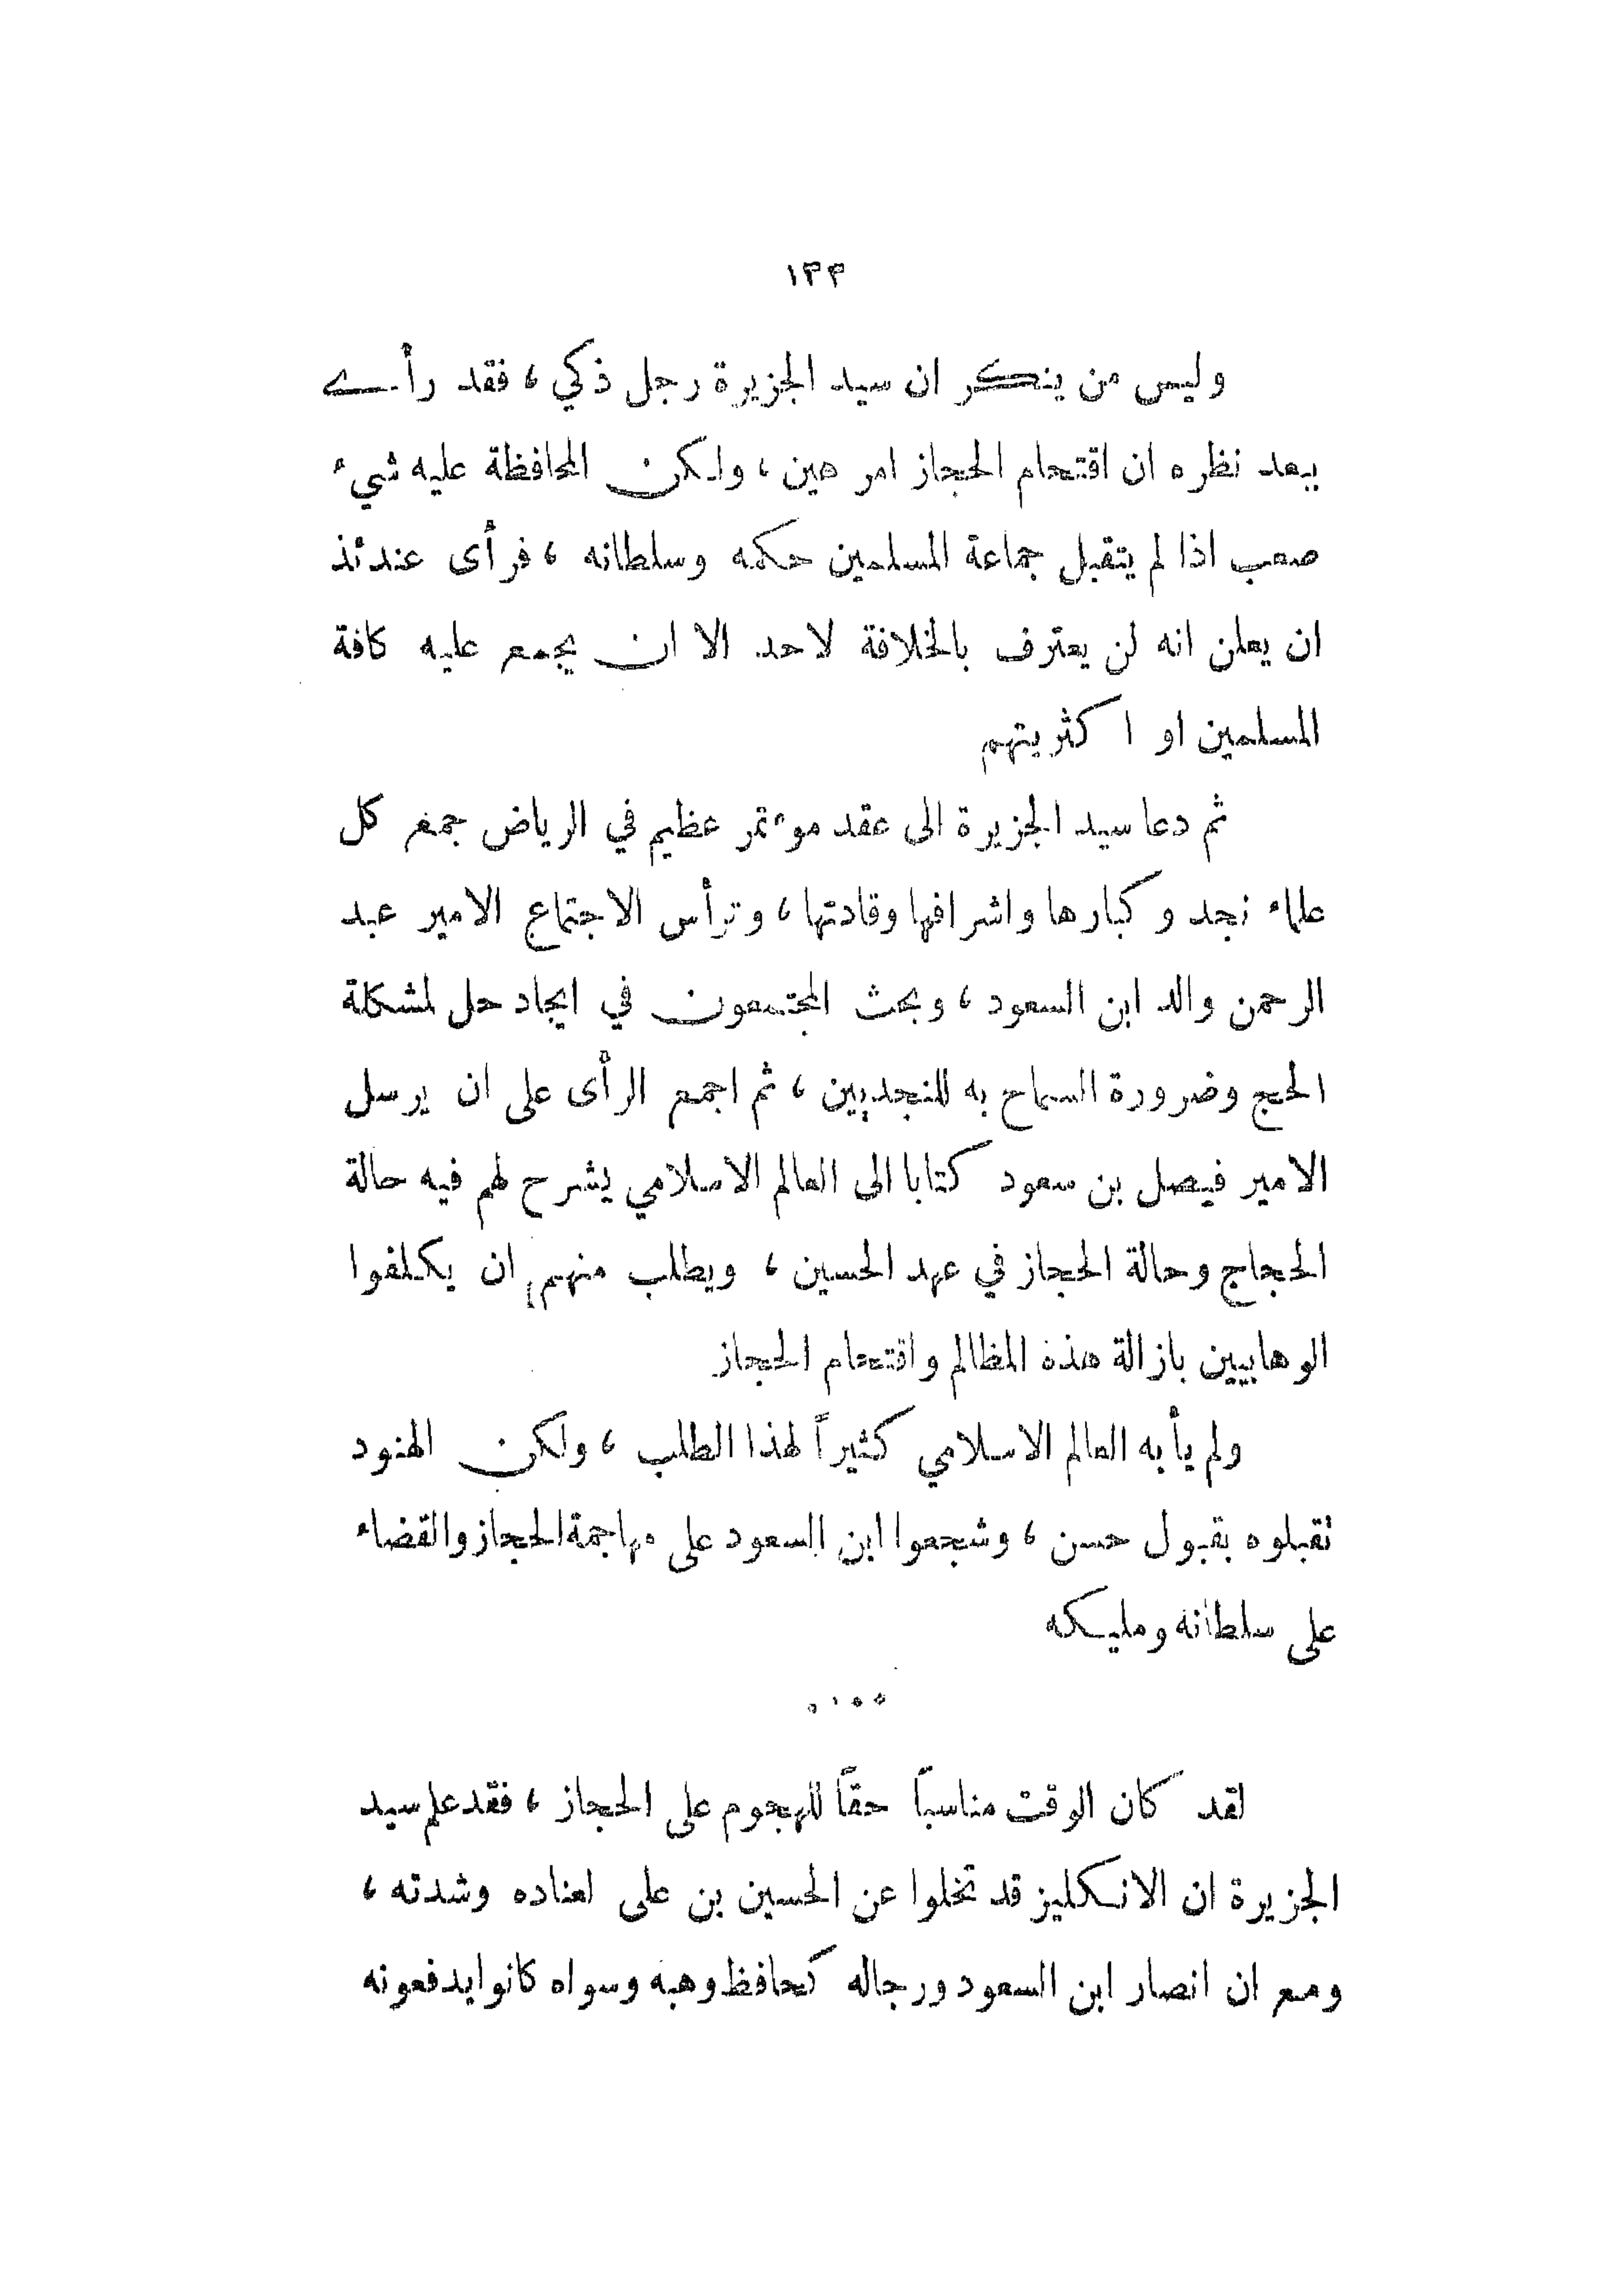 ١٣٣
وليس من ينكر ان سيد الجزيرة رجل ذكي ، فقد رأى
ببعد نظره ان اقتحام الحجاز امر هين ، ولكن المحافظة عليه شيء
صعب اذا لم يتقبل جماعة المسلمين حكمه وسلطانه ، فرأى عندئذ
ان يعلن انه لن يعترف بالخلافة لاحد الا ان يجمع عليه كافة
المسلمين او اكثريتهم
ثم دعا سيد الجزيرة الى عقد مؤتمر عظيم في الرياض جمع كل
علماء نجد وكبارها واشرافها وقادتها ، وترأس الاجتماع الامير عبد
الرحمن والد ابن السعود ، وبحث المجتمعون في ايجاد حل لمشكلة
الحج وضرورة السماح به للنجديين ، ثم اجمع الرأى على ان يرسل
الامير فيصل بن سعود كتابا الى العالم الاسلامي يشرح لهم فيه حالة
الحجاج وحالة الحجاز في عهد الحسين ، ويطلب منهم ان يكلفوا
الوهابيين بازالة هذه المظالم واقتحام الحجاز
ولم يأبه العالم الاسلامي كثيراً لهذا الطلب ، ولكن الهنود
تقبلوه بقبول حسن ، وشجعوا ابن السعود على مهاجمة الحجاز والقضاء
على سلطانه ومليكه
لقد كان الوقت مناسباً حقاً للهجوم على الحجاز ، فقد علم سيد
الجزيرة ان الانكليز قد تخلوا عن الحسين بن على لعناده وشدته ،
ومع ان انصار ابن السعود ورجاله كحافظ وهبه وسواه كانوا يدفعونه